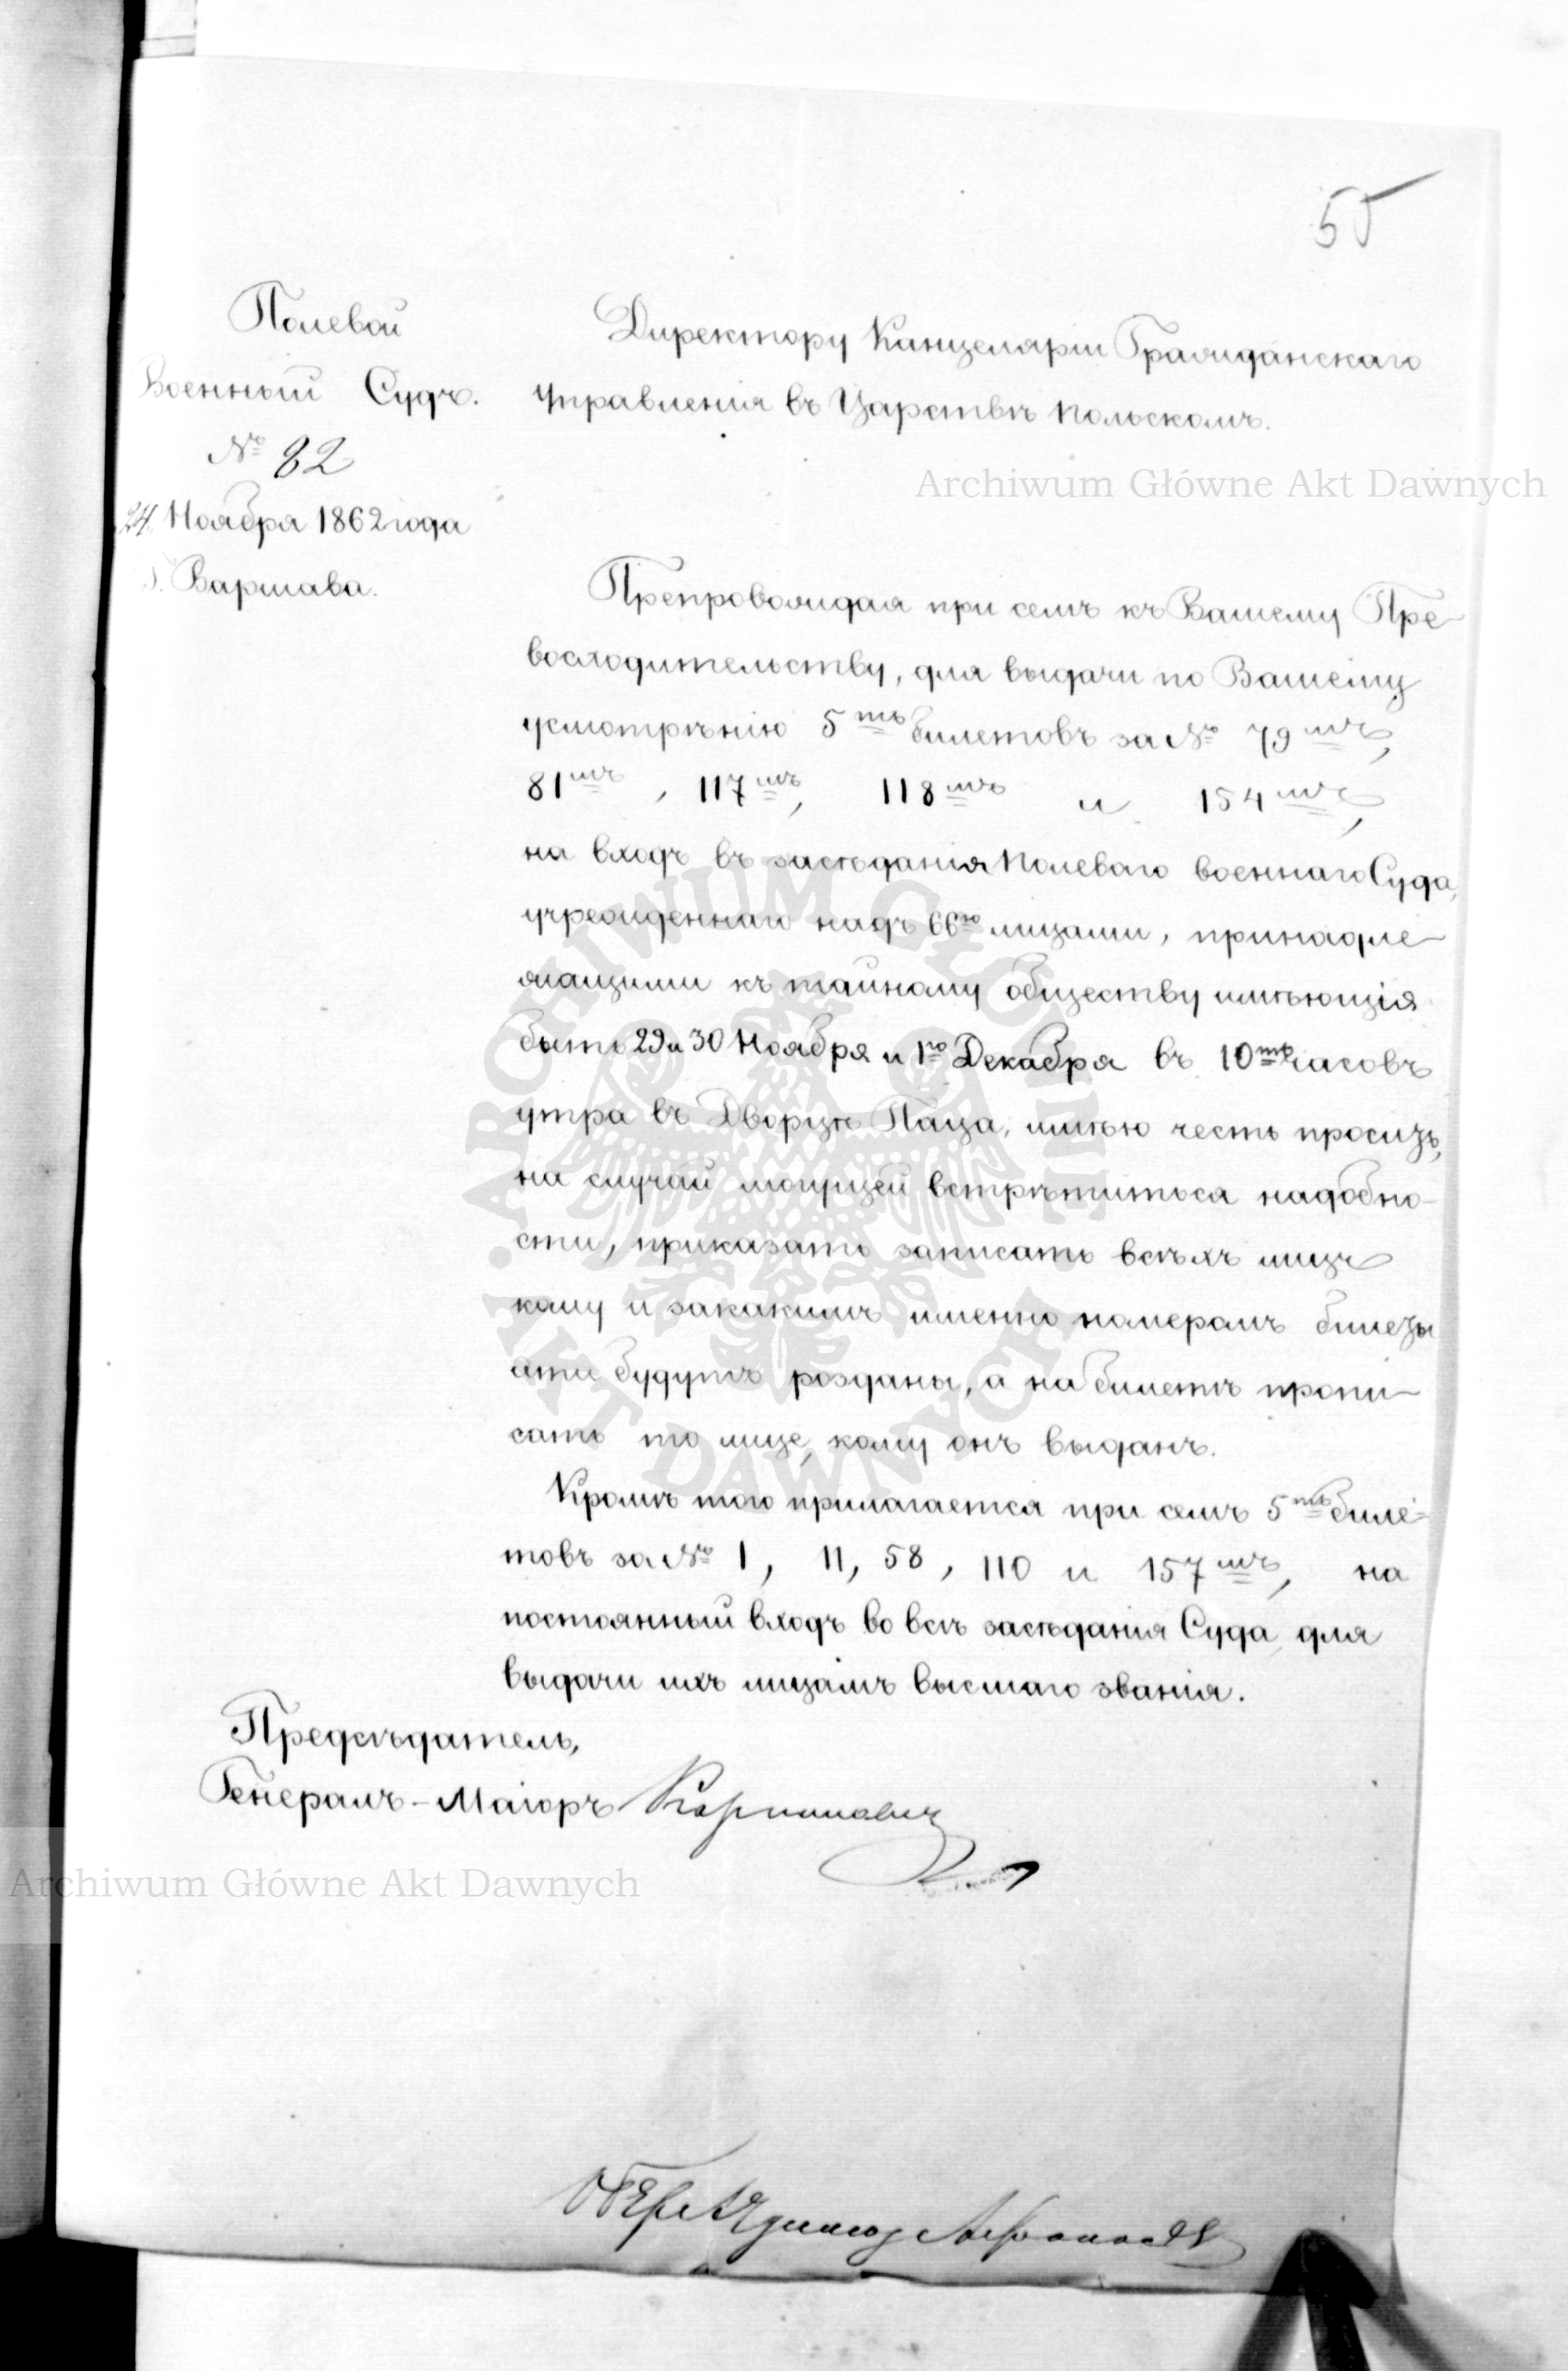 55
Полевой
Военный Судъ.
№ 82
24 Ноября 1862 года
Г. Варшава.
Директору Канцеляріи Гражданскаго
Управленія въ Царствѣ Польскомъ.
Archiwum Główne Akt Dawnych
Препровождая при семъ къ Вашему Пре-
восходительству, для выдачи по Вашему
усмотрѣнію 5ть билетовъ за № 79мъ,
81мъ, 117мъ, 118мъ и 154мъ,
на входъ въ засѣданія Полеваго военнаго Суда,
учрежденнаго надъ 66ю лицами, принадле-
жащими къ тайному обществу имѣющія
быть 29 и 30 Ноября и 1го Декабря въ 10ть часовъ
утра въ Дворцѣ Паца, имѣю честь просить,
на случай могущей встрѣтиться надобно-
сти, приказать записать всѣхъ лицъ
кому и за какимъ именно номеромъ билеты
эти будутъ розданы, а на билетѣ пропи-
сать то лице, кому онъ выданъ.
Кромѣ того прилагается при семъ 5ть биле-
товъ за № 1, 11, 58, 110 и 157мъ, на
постоянный входъ во всѣ засѣданія Суда для
выдачи ихъ лицамъ высшаго званія.
Предсѣдатель,
Генералъ-Маіоръ
Archiwum Główne Akt Dawnych
ARCHIWUM GŁÓWNE
AKT DAWNYCH